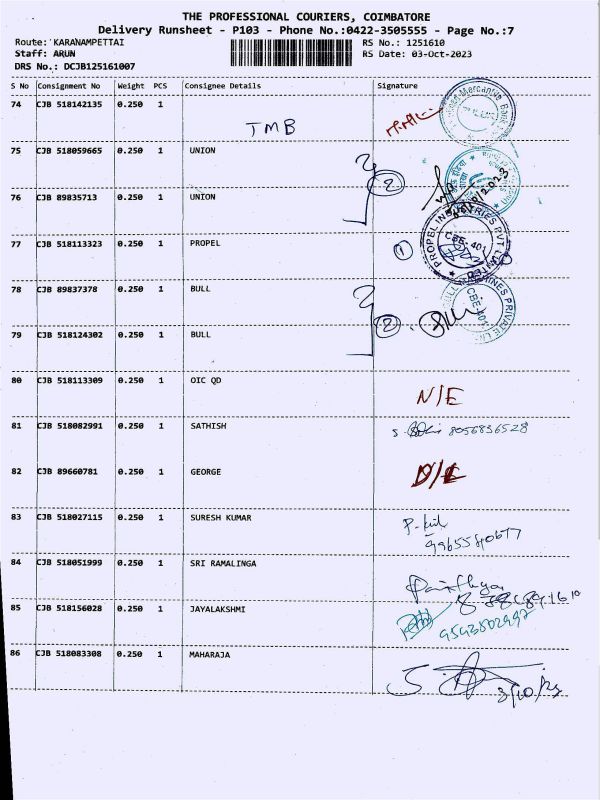 THE PROFESSIONAL COURIERS, COIMBATORE
Delivery Runsheet - P103 - Phone No.:0422-3505555 - Page No.:7
Route: KARANAMPETTAI RS No.: 1251610
Staff: ARUN RS Date: 03-Oct-2023
DRS No.: DCJB125161007
S No Consignment No Weight PCS Consignee Details Signature
74 CJB 518142135 0.250 1
TMB
75 CJB 518059665 0.250 1 UNION
2
76 CJB 89835713 0.250 1 UNION
77 CJB 518113323 0.250 1 PROPEL
1
PROPEL INDUSTRIES PVT
CBE-401
78 CJB 89837378 0.250 1 BULL
MACHINES PRIVATE
CBE-401
2
79 CJB 518124302 0.250 1 BULL
80 CJB 518113309 0.250 1 OIC QD
N/E
81 CJB 518082991 0.250 1 SATHISH
8056836528
82 CJB 89660781 0.250 1 GEORGE
D/L
83 CJB 518027115 0.250 1 SURESH KUMAR
84 CJB 518051999 0.250 1 SRI RAMALINGA
85 CJB 518156028 0.250 1 JAYALAKSHMI
86 CJB 518083308 0.250 1 MAHARAJA
3/10/23